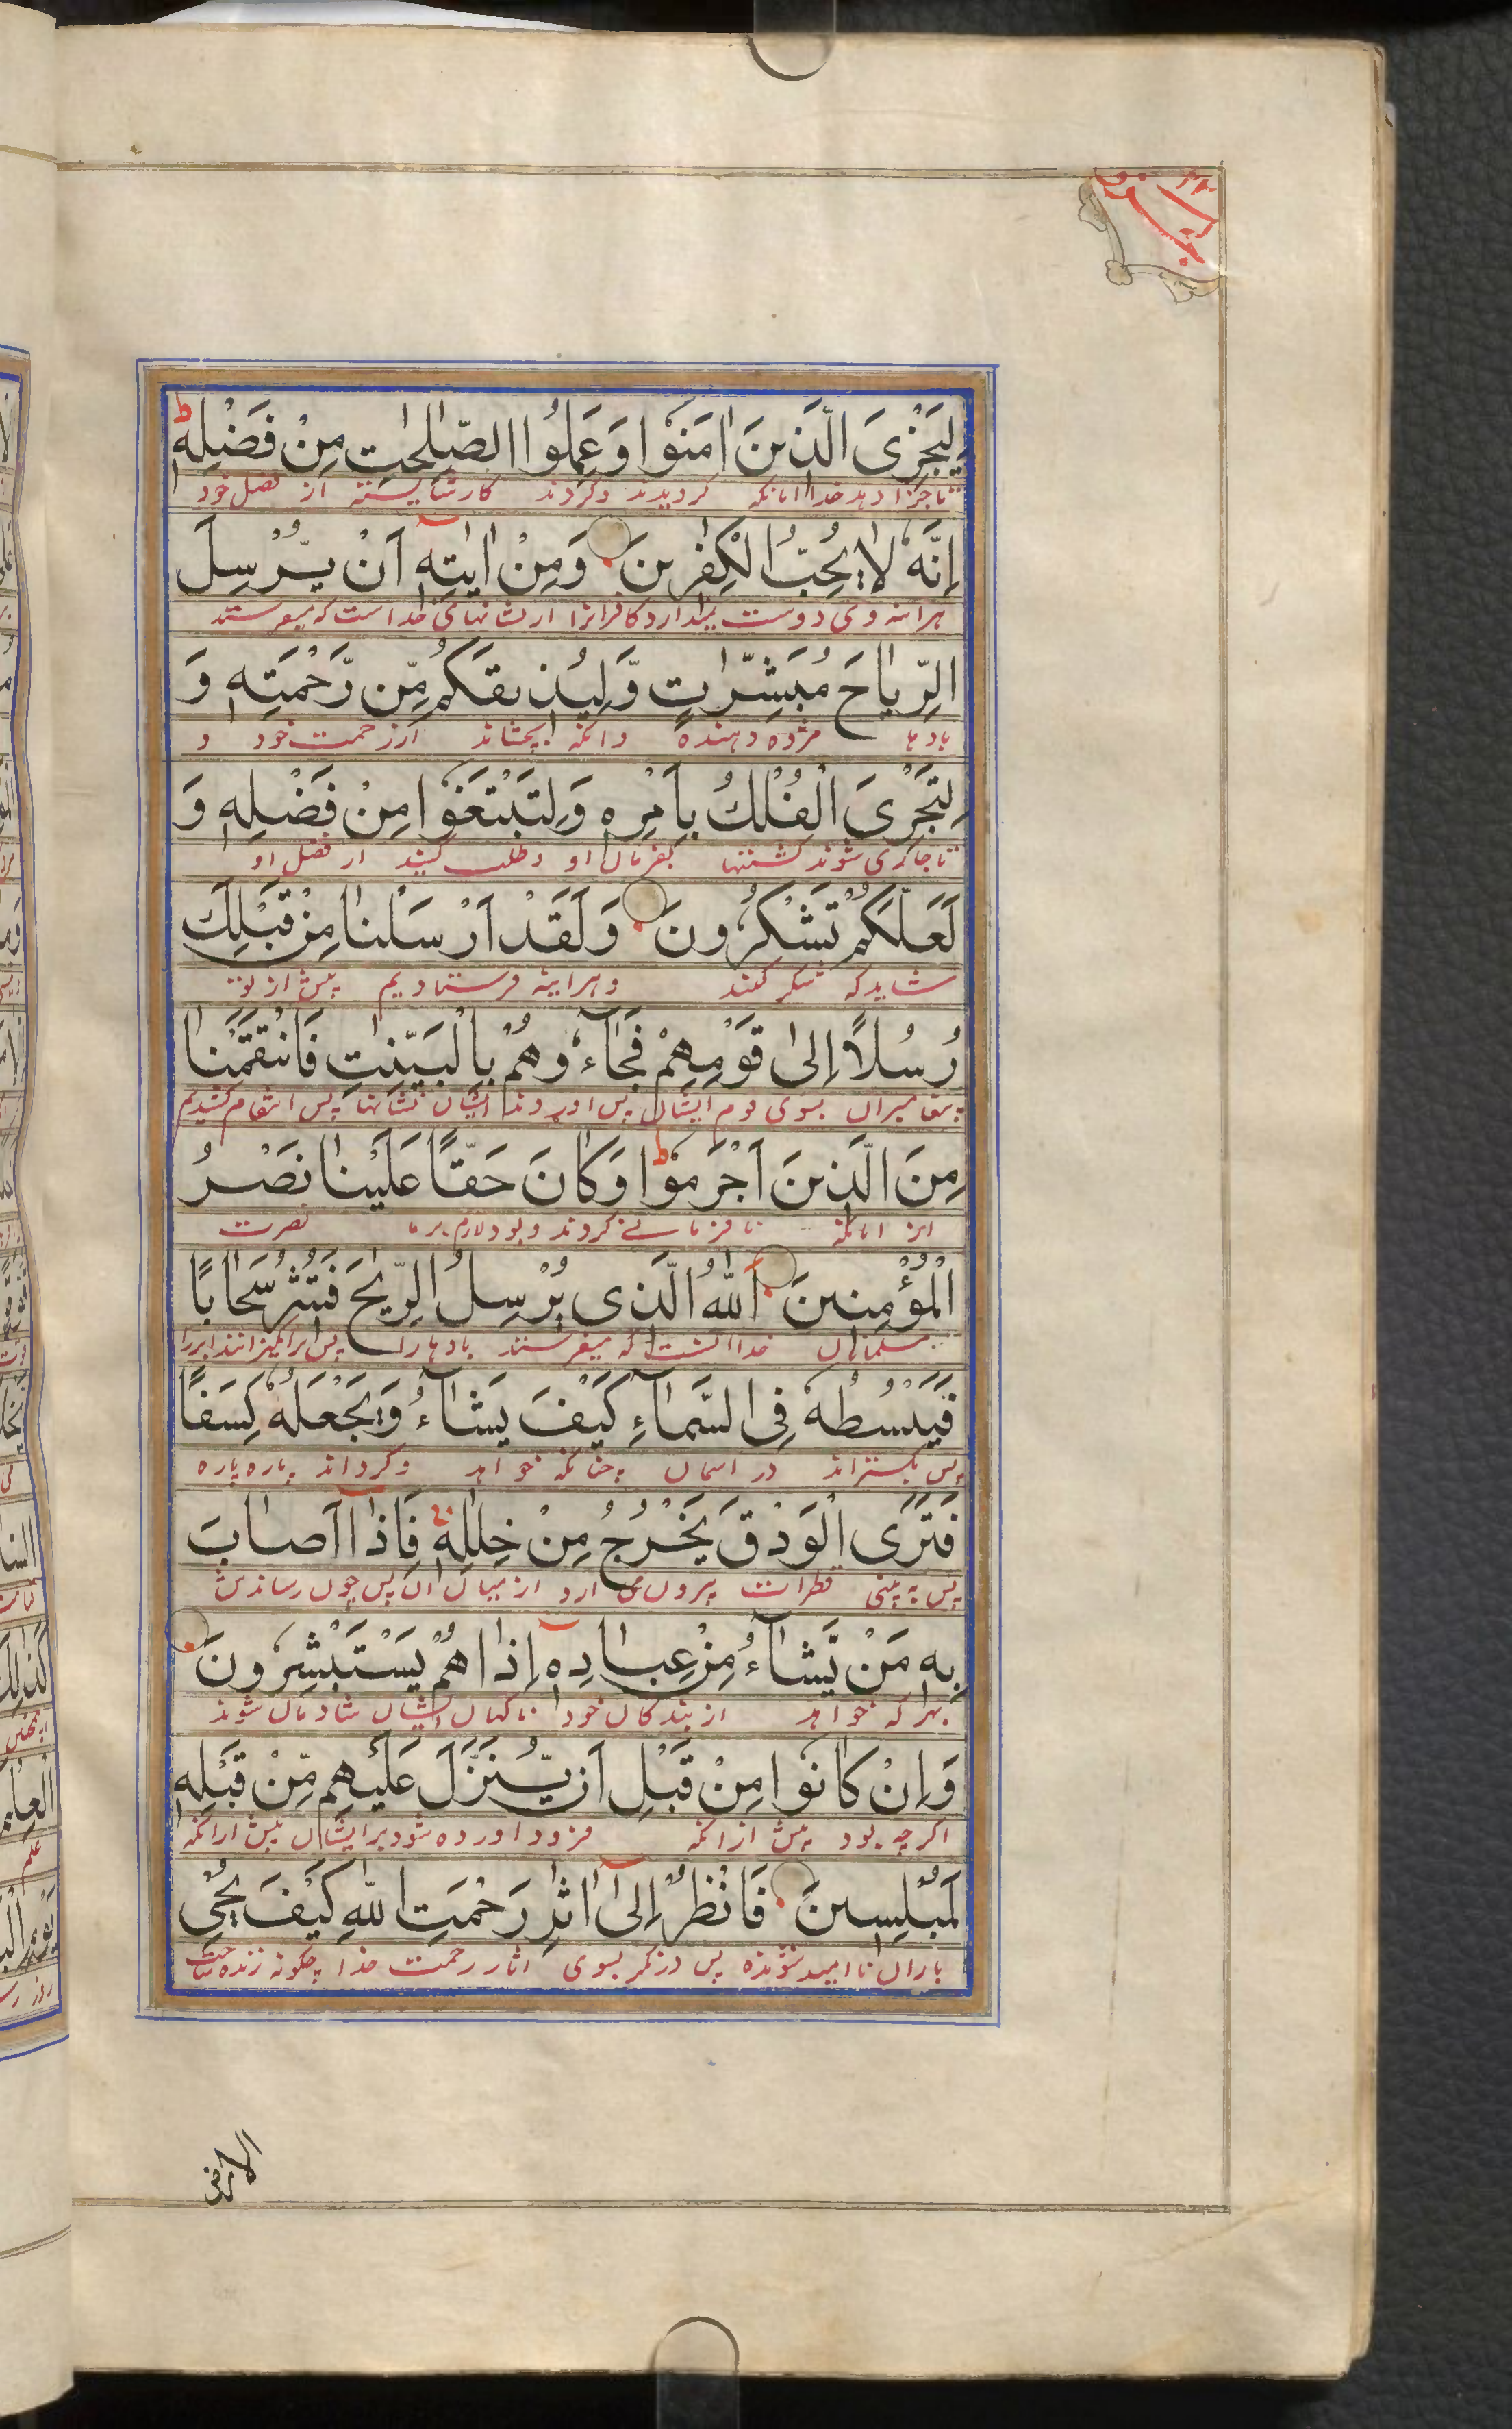 لِيَجْزِيَ الَّذِينَ اٰمَنُوا وَعَمِلُوا الصّٰلِحٰتِ مِنْ فَضْلِهٖ ط
تا جزا دهد خدا انانکه کرویدند وکردند کار شایسته از فضل خود
اِنَّهُ لَا يُحِبُّ الْكٰفِرِينَ وَمِنْ اٰيٰتِهٖ اَنْ يُّرْسِلَ
هراینه وی دوست نمیدارد کافرانرا از نشانهای خدا است که میفرستد
الرِّيَاحَ مُبَشِّرٰتٍ وَّلِيُذِيقَكُمْ مِّنْ رَّحْمَتِهٖ وَ
بادها مژده دهنده وانکه بچشاند از رحمت خود و
لِتَجْرِيَ الْفُلْكُ بِاَمْرِهٖ وَلِتَبْتَغُوا مِنْ فَضْلِهٖ وَ
تا جاری شوند کشتیها بفرمان او وطلب کنید از فضل او
لَعَلَّكُمْ تَشْكُرُونَ وَلَقَدْ اَرْسَلْنَا مِنْ قَبْلِكَ
شاید که شکر کنید وهراینه فرستادیم پیش از تو
رُسُلًا اِلٰى قَوْمِهِمْ فَجَآءُوهُمْ بِالْبَيِّنٰتِ فَانْتَقَمْنَا
پیغامبران بسوی قوم ایشان پس اوردند ایشان نشانها پس انتقام کشیدیم
مِنَ الَّذِينَ اَجْرَمُوا ط وَكَانَ حَقًّا عَلَيْنَا نَصْرُ
از انانکه نافرمانے کردند وبود لازم بر ما نصرت
الْمُؤْمِنِينَ اَللّٰهُ الَّذِى يُرْسِلُ الرِّيٰحَ فَتُثِيرُ سَحَابًا
مسلمانان خدا انست که میفرستد بادها را پس برانگیزانند ابر را
فَيَبْسُطُهُ فِى السَّمَآءِ كَيْفَ يَشَآءُ وَيَجْعَلُهُ كِسَفًا
پس بکستراند در اسمان چنانکه خواهد وکرداند پاره پاره
فَتَرَى الْوَدْقَ يَخْرُجُ مِنْ خِلٰلِهٖ فَاِذَا اَصَابَ
پس به بینی قطرات بیرون می ارد از میان ان پس چون رساندش
بِهٖ مَنْ يَّشَآءُ مِنْ عِبَادِهٖ اِذَا هُمْ يَسْتَبْشِرُونَ
بهر که خواهد از بندکان خود ناکهان ایشان شادمان شوند
وَاِنْ كَانُوا مِنْ قَبْلِ اَنْ يُّنَزَّلَ عَلَيْهِمْ مِّنْ قَبْلِهٖ
اکرچه بود پیش از انکه فرود اورده شود بر ایشان پیش از انکه
لَمُبْلِسِينَ فَانْظُرْ اِلٰى اٰثٰرِ رَحْمَتِ اللّٰهِ كَيْفَ يُحْيِ
باران نا امید شونده پس در نکر بسوی اثار رحمت خدا چکونه زنده ساخت
الارض